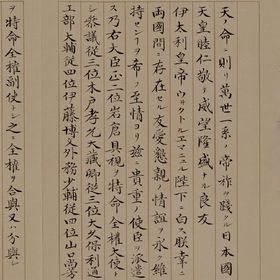 天ノ命ニ則リ萬世一系ノ帝祚ヲ踐タル日本國
天皇睦仁敬テ威望隆盛ナル良友
伊太利皇帝ウヰクトルエマニュル陛下ニ白ス朕幸ニ
兩國間ニ存在セル友愛懇親ノ情誼ヲ永ク維
持センヿヲ希フノ至情ヨリ茲ニ貴重ノ使臣ヲ派遣
ス乃右大臣正二位岩倉具視ヲ特命全權大使ト
シ參議從三位木戸孝允大藏卿從三位大久保利通
工部大輔從四位伊藤博文外務少輔從四位山口尚芳
ヲ特命全權副使トシ之ニ全權ヲ合與又ハ分與シ